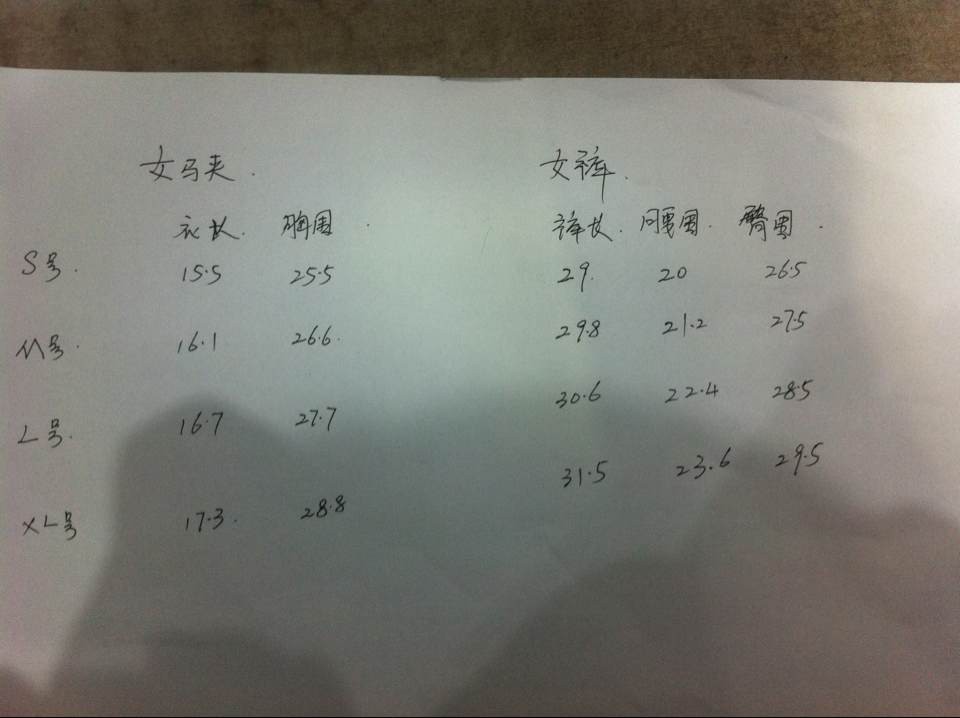 女马夹. 女裤.
衣长. 胸围. 裤长. 腰围. 臀围.
S号. 15.5 25.5 29. 20 26.5
M号. 16.1 26.6. 29.8 21.2 27.5
L号. 16.7 27.7 30.6 22.4 28.5
XL号 17.3. 28.8 31.5 23.6 29.5